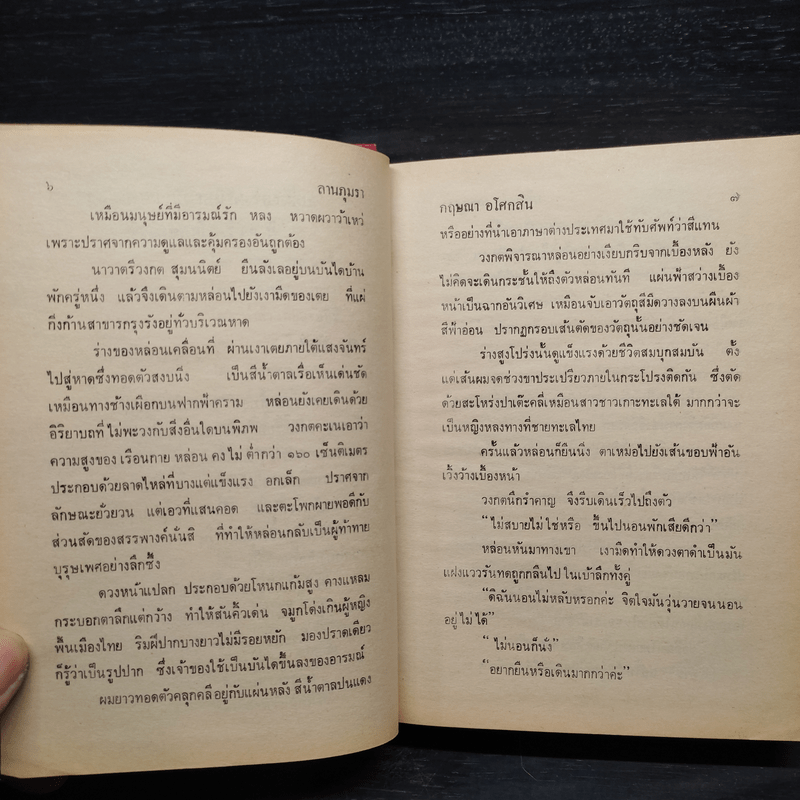 ๖
ลานภุมรา
เหมือนมนุษย์ที่มีอารมณ์รัก หลง หวาดผวาว้าเหว่
เพราะปราศจากความดูแลและคุ้มครองอันถูกต้อง
นาวาตรีวงกต สุมนนิตย์ ยืนลังเลอยู่บนบันไดบ้าน
พักครู่หนึ่ง แล้วจึงเดินตามหล่อนไปยังเงามืดของเตย ที่แผ่
กิ่งก้านสาขารกรุงรังอยู่ทั่วบริเวณหาด
ร่างของหล่อนเคลื่อนที่ ผ่านเงาเตยภายใต้แสงจันทร์
ไปสู่หาดซึ่งทอดตัวสงบนิ่ง เป็นสีน้ำตาลเรื่อเห็นเด่นชัด
เหมือนทางช้างเผือกบนฟากฟ้าคราม หล่อนยังเคยเดินด้วย
อิริยาบถที่ไม่พะวงกับสิ่งอื่นใดบนพิภพ วงกตคะเนเอาว่า
ความสูงของ เรือนกาย หล่อน คงไม่ ต่ำกว่า ๑๖๐ เซ็นติเมตร
ประกอบด้วยลาดไหล่ที่บางแต่แข็งแรง อกเล็ก ปราศจาก
ลักษณะยั่วยวน แต่เอวที่แสนคอด และตะโพกผายพอดีกับ
ส่วนสัดของสรรพางค์นั่นสิ ที่ทำให้หล่อนกลับเป็นผู้ท้าทาย
บุรุษเพศอย่างลึกซึ้ง
ดวงหน้าแปลก ประกอบด้วยโหนกแก้มสูง คางแหลม
กระบอกตาลึกแต่กว้าง ทำให้สันคิ้วเด่น จมูกโด่งเกินผู้หญิง
พื้นเมืองไทย ริมฝีปากบางยาวไม่มีรอยหยัก มองปราดเดียว
ก็รู้ว่าเป็นรูปปาก ซึ่งเจ้าของใช้เป็นบันไดขึ้นลงของอารมณ์
ผมยาวทอดตัวคลุกคลีอยู่กับแผ่นหลัง สีน้ำตาลปนแดง
กฤษณา อโศกสิน
๗
หรืออย่างที่นำเอาภาษาต่างประเทศมาใช้ทับศัพท์ว่าสีแทน
วงกตพิจารณาหล่อนอย่างเงียบกริบจากเบื้องหลัง ยัง
ไม่คิดจะเดินกระชั้นให้ถึงตัวหล่อนทันที แผ่นฟ้าสว่างเบื้อง
หน้าเป็นฉากอันวิเศษ เหมือนจับเอาวัตถุสีมืดวางลงบนผืนผ้า
สีฟ้าอ่อน ปรากฏกรอบเส้นตัดของวัตถุนั้นอย่างชัดเจน
ร่างสูงโปร่งนั้นดูแข็งแรงด้วยชีวิตสมบุกสมบัน ตั้ง
แต่เส้นผมจดช่วงขาประเปรียวภายในกระโปรงติดกัน ซึ่งตัด
ด้วยสะโหร่งปาเต๊ะคลี่เหมือนสาวชาวเกาะทะเลใต้ มากกว่าจะ
เป็นหญิงหลงทางที่ชายทะเลไทย
ครั้นแล้วหล่อนก็ยืนนิ่ง ตาเหม่อไปยังเส้นขอบฟ้าอัน
เวิ้งว้างเบื้องหน้า
วงกตนึกรำคาญ จึงรีบเดินเร็วไปถึงตัว
“ไม่สบายไม่ใช่หรือ ขึ้นไปนอนพักเสียดีกว่า”
หล่อนหันมาทางเขา เงามืดทำให้ดวงตาดำเป็นมัน
แฝงแววรันทดถูกกลืนไป ในเบ้าลึกทั้งคู่
“ดิฉันนอนไม่หลับหรอกค่ะ จิตใจมันวุ่นวายจนนอน
อยู่ไม่ได้”
“ไม่นอนก็นั่ง”
“อยากยืนหรือเดินมากกว่าค่ะ”